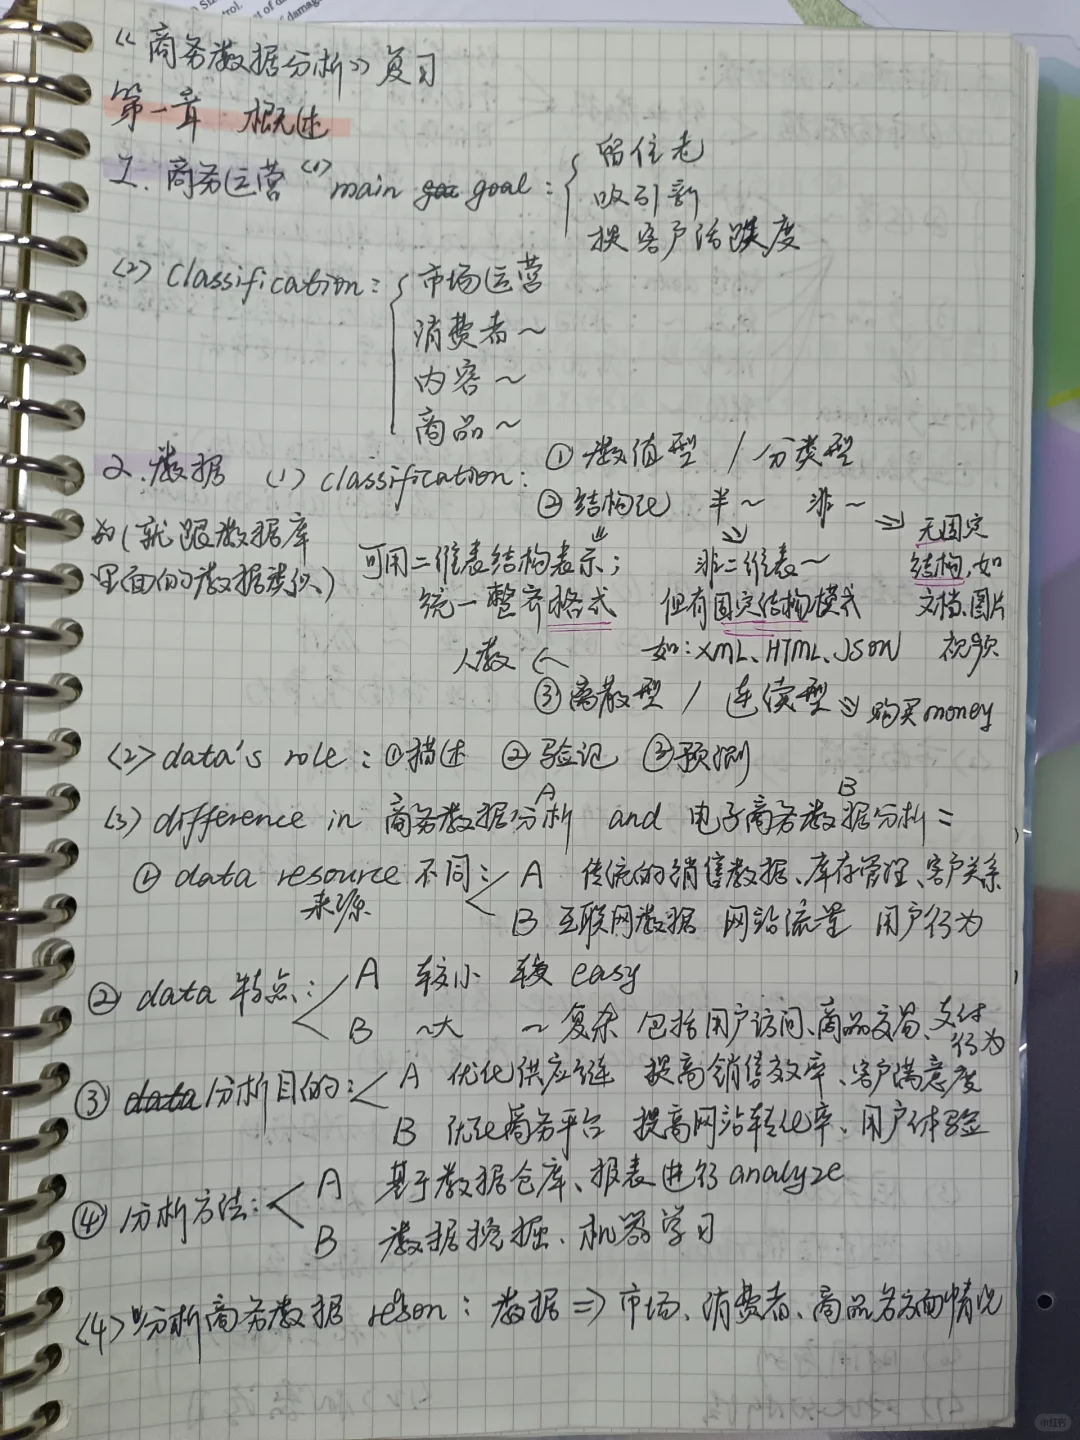 《商务数据分析》复习
第一章 概述
1. 商务运营 <1> main goal：留住老
吸引新
提客户活跃度
<2> classification：市场运营
消费者～
内容～
商品～
2. 数据 (1) classification：① 数值型 / 分类型
② 结构化 半～ 非～ ⇒ 无固定
(就跟数据库 可用二维表结构表示； 非二维表～ 结构,如
里面的数据类似) 统一整齐格式 但有固定结构模式 文档、图片
人数 ← 如：XML、HTML、JSON 视频
③ 离散型 / 连续型 ⇒ 购买money
<2> data's role：①描述 ②验证 ③预测
A B
<3> difference in 商务数据分析 and 电子商务数据分析：
① data resource 不同：A 传统的销售数据、库存管理、客户关系
来源 B 互联网数据 网站流量 用户行为
② data 特点：A 较小 较 easy
B ～大 ～复杂 包括用户访问、商品交易、支付
行为
③ 分析目的：A 优化供应链 提高销售效率、客户满意度
B 优化商务平台 提高网站转化率、用户体验
④ 分析方法：A 基于数据仓库、报表进行 analyze
B 数据挖掘、机器学习
<4> 分析商务数据 reason：数据 ⇒ 市场、消费者、商品各方面情况
小红书